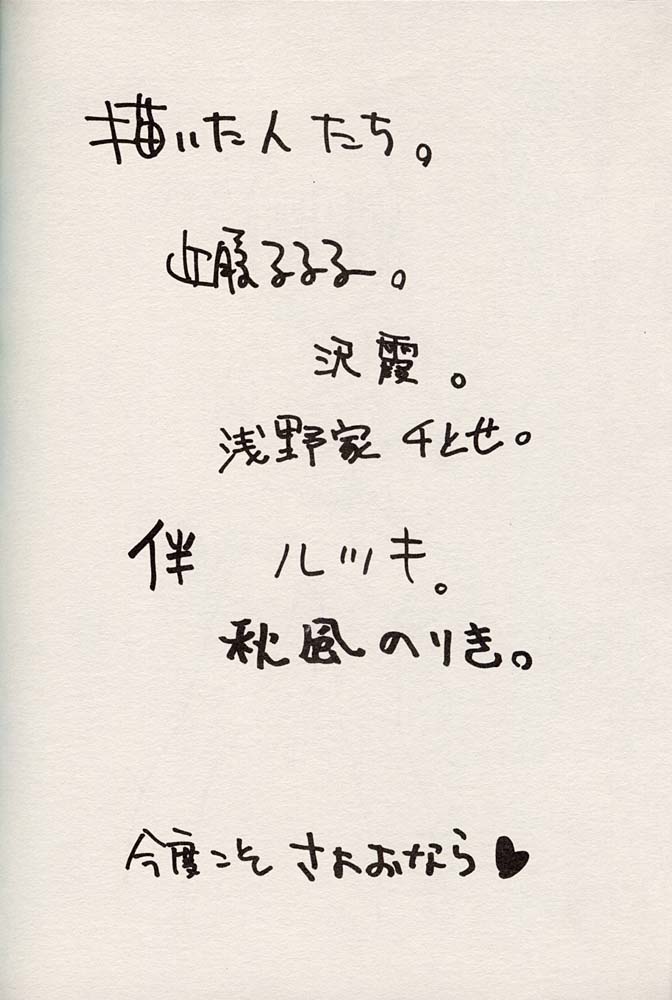 描いた人たち。
暇るるる。
沢霞。
浅野家 千とせ。
伴 ルツキ。
秋風のりき。
今度こそ さよおなら♥